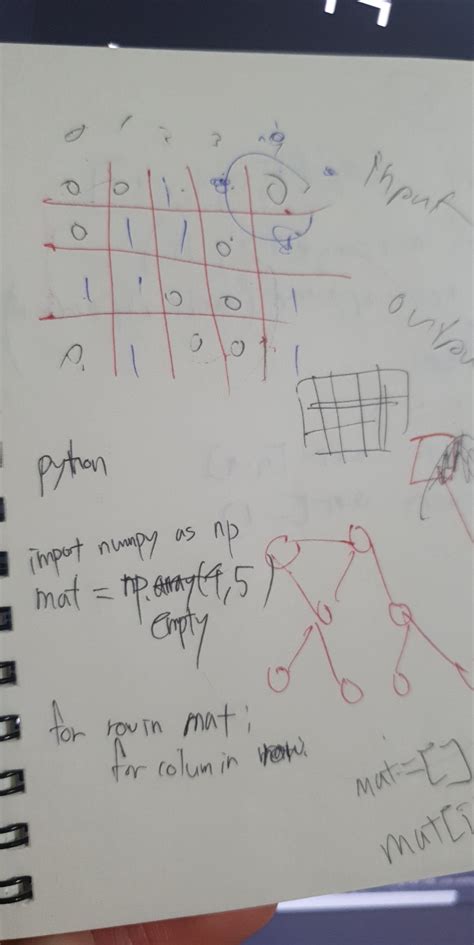 0 1 2 3 4
0 0 1 0
0 1 1 0
1 1 0 0 1
0 1 0 0 1
input
outpu
python
import numpy as np
mat = np.array(4,5)
empty
for row in mat:
for colum in row:
mat=[]
mat[i